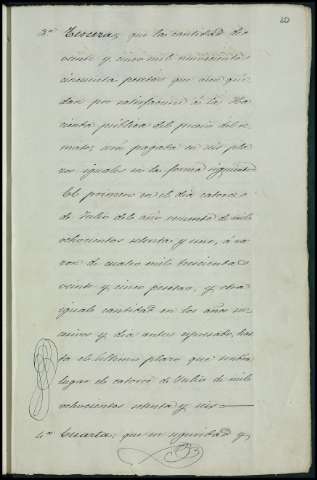 20
3.ª Tercera; que la cantidad de
veinte y cinco mil novecientas
cincuenta pesetas que aun que-
dan por satisfacer á la Ha-
cienda pública del precio del re-
mate, será pagada en seis pla-
zos iguales en la forma siguiente
El primero en el dia catorce
de Julio del año mil
ochocientos setenta y uno, á ra-
zon de cuatro mil trescientas
veinte y cinco pesetas, y otra
igual cantidad en los años
y dia antes espresado, has-
ta el último plazo que tendrá
lugar el catorce de Julio de mil
ochocientos setenta y seis
4.ª Cuarta; que en seguridad y